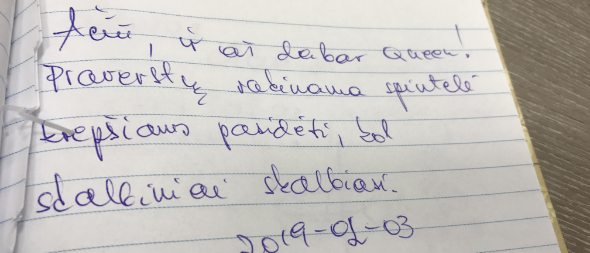 Ačiū, ir aš dabar Queen!
Praverstų rakinama spintelė
krepšiams pasidėti, kol
skalbiniai skalbiasi.
2019-02-03